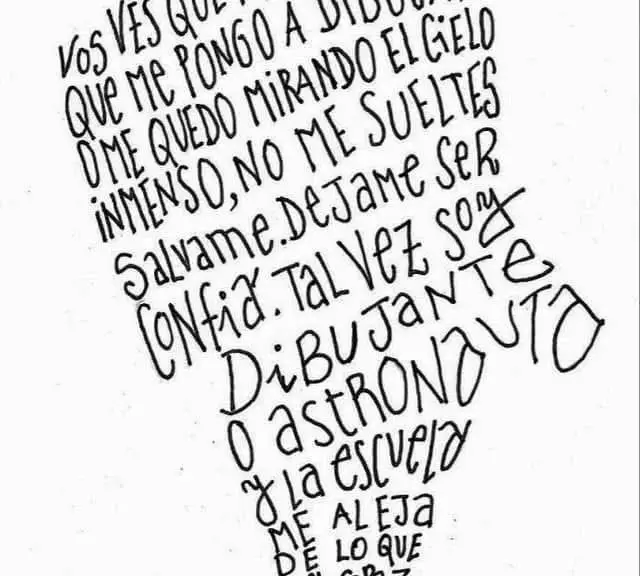 VOS VES QUE
QUE ME PONGO A DIBUJA
O ME QUEDO MIRANDO EL CIELO
INMENSO, NO ME SUELTES
SALVAME. DEJAME SER
CONFIÁ. TAL VEZ SOY
DIBUJANTE
O ASTRONAUTA
Y LA ESCUELA
ME ALEJA
DE LO QUE